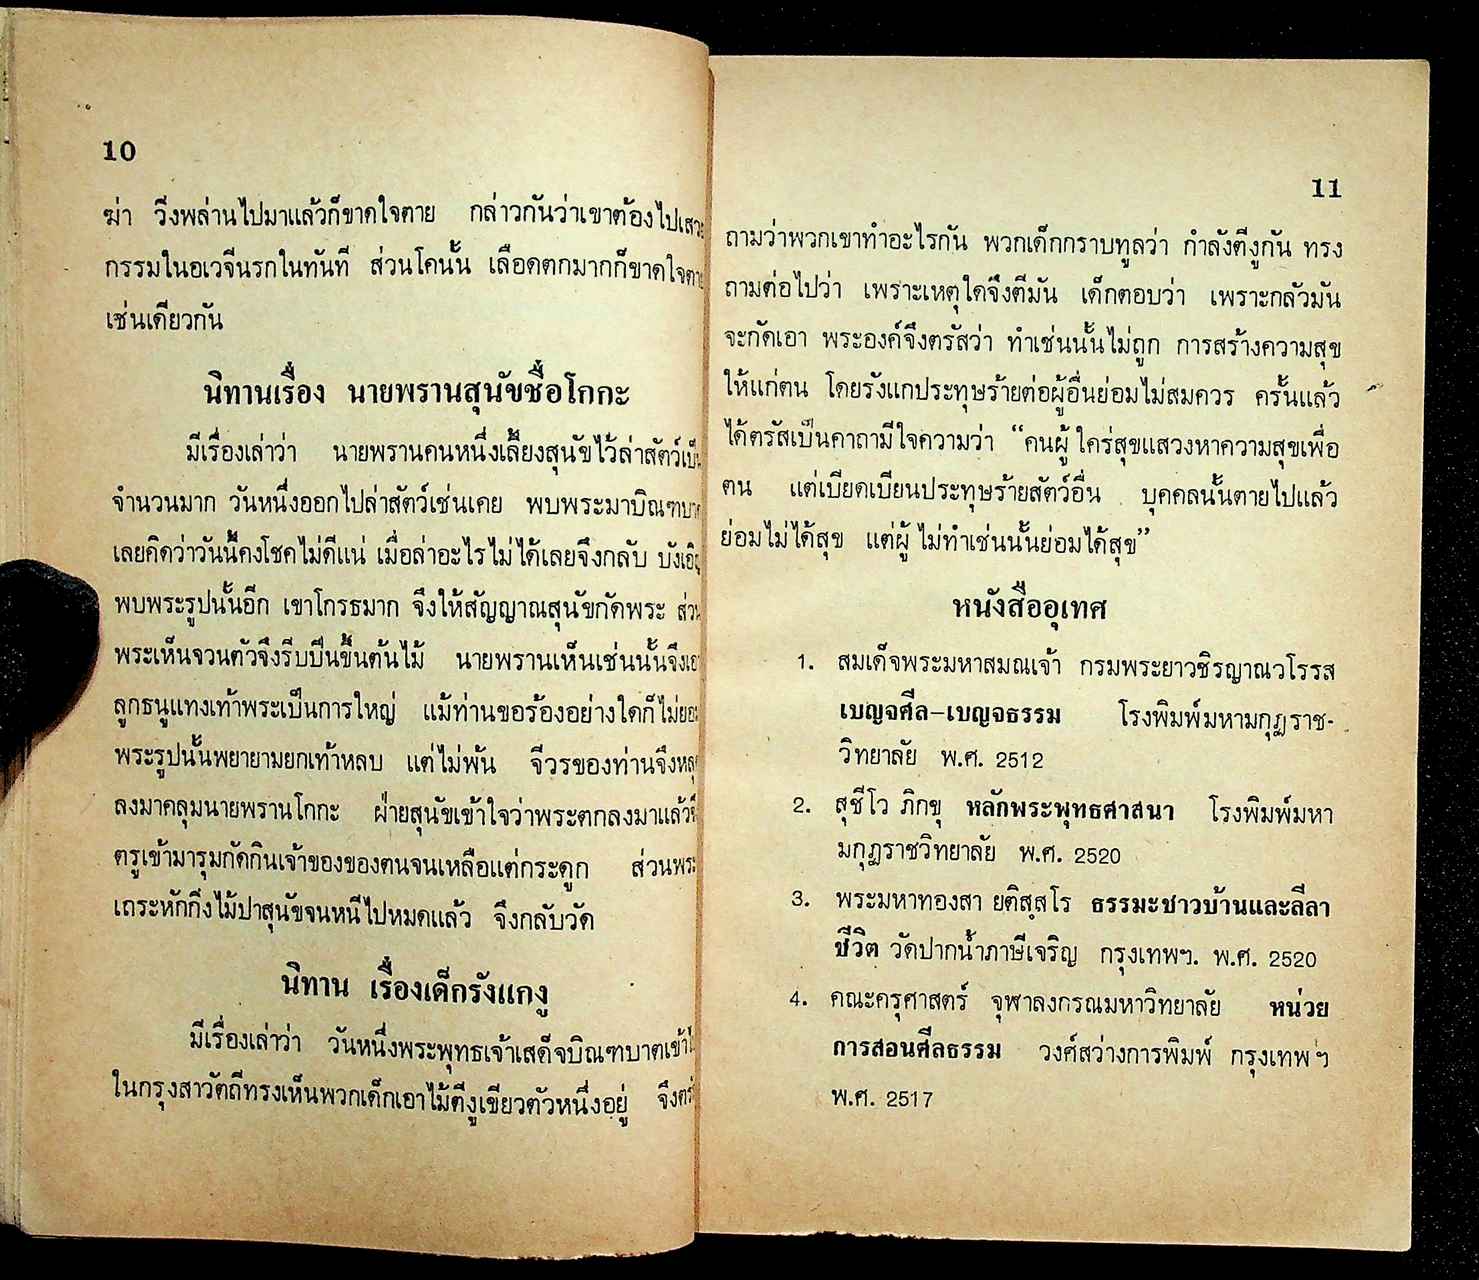 10
ฆ่า วิ่งพล่านไปมาแล้วก็ขาดใจตาย กล่าวกันว่าเขาต้องไปเสวย
กรรมในอเวจีนรกในทันที ส่วนโคนั้น เลือดตกมากก็ขาดใจตาย
เช่นเดียวกัน
นิทานเรื่อง นายพรานสุนัขชื่อโกกะ
มีเรื่องเล่าว่า นายพรานคนหนึ่งเลี้ยงสุนัขไว้ล่าสัตว์เป็น
จำนวนมาก วันหนึ่งออกไปล่าสัตว์เช่นเคย พบพระมาบิณฑบาต
เลยคิดว่าวันนี้คงโชคไม่ดีแน่ เมื่อล่าอะไรไม่ได้เลยจึงกลับ บังเอิญ
พบพระรูปนั้นอีก เขาโกรธมาก จึงให้สัญญาณสุนัขกัดพระ ส่วน
พระเห็นจวนตัวจึงรีบปีนขึ้นต้นไม้ นายพรานเห็นเช่นนั้นจึงเอา
ลูกธนูแทงเท้าพระเป็นการใหญ่ แม้ท่านขอร้องอย่างใดก็ไม่ยอม
พระรูปนั้นพยายามยกเท้าหลบ แต่ไม่พ้น จีวรของท่านจึงหลุด
ลงมาคลุมนายพรานโกกะ ฝ่ายสุนัขเข้าใจว่าพระตกลงมาแล้วจึ
ตรูเข้ามารุมกัดกินเจ้าของของตนจนเหลือแต่กระดูก ส่วนพระ
เถระหักกิ่งไม้ปาสุนัขจนหนีไปหมดแล้ว จึงกลับวัด
นิทาน เรื่องเด็กรังแกงู
มีเรื่องเล่าว่า วันหนึ่งพระพุทธเจ้าเสด็จบิณฑบาตเข้าไป
ในกรุงสาวัตถีทรงเห็นพวกเด็กเอาไม้ตีงูเขียวตัวหนึ่งอยู่ จึงตรั
11
ถามว่าพวกเขาทำอะไรกัน พวกเด็กกราบทูลว่า กำลังตีงูกัน ทรง
ถามต่อไปว่า เพราะเหตุใดจึงตีมัน เด็กตอบว่า เพราะกลัวมัน
จะกัดเอา พระองค์จึงตรัสว่า ทำเช่นนั้นไม่ถูก การสร้างความสุข
ให้แก่ตน โดยรังแกประทุษร้ายต่อผู้อื่นย่อมไม่สมควร ครั้นแล้ว
ได้ตรัสเป็นคาถามีใจความว่า “คนผู้ใคร่สุขแสวงหาความสุขเพื่อ
ตน แต่เบียดเบียนประทุษร้ายสัตว์อื่น บุคคลนั้นตายไปแล้ว
ย่อมไม่ได้สุข แต่ผู้ไม่ทำเช่นนั้นย่อมได้สุข”
หนังสืออุเทศ
1. สมเด็จพระมหาสมณเจ้า กรมพระยาวชิรญาณวโรรส
เบญจศีล–เบญจธรรม โรงพิมพ์มหามกุฏราช-
วิทยาลัย พ.ศ. 2512
2. สุชีโว ภิกขุ หลักพระพุทธศาสนา โรงพิมพ์มหา
มกุฏราชวิทยาลัย พ.ศ. 2520
3. พระมหาทองสา ยติสฺสโร ธรรมะชาวบ้านและลีลา
ชีวิต วัดปากน้ำภาษีเจริญ กรุงเทพฯ. พ.ศ. 2520
4. คณะครุศาสตร์ จุฬาลงกรณมหาวิทยาลัย หน่วย
การสอนศีลธรรม วงศ์สว่างการพิมพ์ กรุงเทพฯ
พ.ศ. 2517